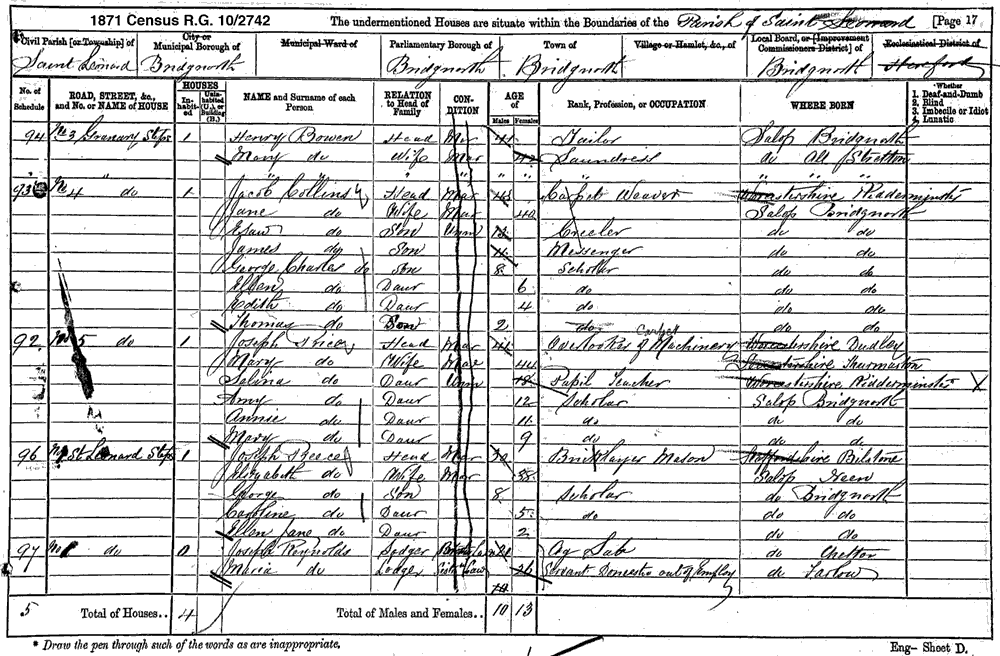 1871 Census R.G. 10/2742 The undermentioned Houses are situate within the Boundaries of the Parish of Saint Leonard [Page 17
Civil Parish [or Township] of City or Municipal Borough of Municipal Ward of Parliamentary Borough of Town of Village or Hamlet, &c., of Local Board, or [Improvement Commissioners District] of Ecclesiastical District of
Saint Leonard Bridgnorth Bridgnorth Bridgnorth Bridgnorth Hereford
No. of Schedule ROAD, STREET, &c., and No. or NAME of HOUSE HOUSES Inhabited Uninhabited (U.), or Building (B.) NAME and Surname of each Person RELATION to Head of Family CONDITION AGE of Males Females Rank, Profession, or OCCUPATION WHERE BORN Whether 1. Deaf-and-Dumb 2. Blind 3. Imbecile or Idiot 4. Lunatic
94 No 3 Granary Steps 1 Henry Bowen Head Mar 41 Tailor Salop Bridgnorth
Mary do Wife Mar 42 Laundress do All Stretton
" " " " " "
93 No 4 do 1 Jacob Collins Head Mar Carpet Weaver Worcestershire Kidderminster
Jane do Wife Mar 40 Salop Bridgnorth
Esau do Son Unm Creeler do do
James do Son Messenger do do
George Charles do Son 8 Scholar do do
Ellen do Daur 6 do do do
Edith do Daur 4 do do do
Thomas do Son 2 do do do
92 No 5 do 1 Joseph Price Head Mar Overlooker of Carpet Machinery Worcestershire Dudley
Mary do Wife Mar 44 Leicestershire Thurmaston
Selina do Daur Unm 18 Pupil Teacher Worcestershire Kidderminster X
Amy do Daur 12 Scholar Salop Bridgnorth
Annie do Daur 11 do do do
Mary do Daur 9 do do do
96 St Leonard Steps 1 Joseph Reece Head Mar 30 Bricklayer Mason Staffordshire Bilston
Elizabeth do Wife Mar 38 Salop Neen
George do Son 8 Scholar do Bridgnorth
Caroline do Daur 5 do do do
Ellen Jane do Daur 2 do do
97 do 0 Joseph Reynolds Lodger Ag Lab do Chetton
Maria do Lodger 26 Servant Domestic out of Employ do Farlow
5 Total of Houses.. 4 Total of Males and Females.. 10 13
* Draw the pen through such of the words as are inappropriate. Eng— Sheet D.